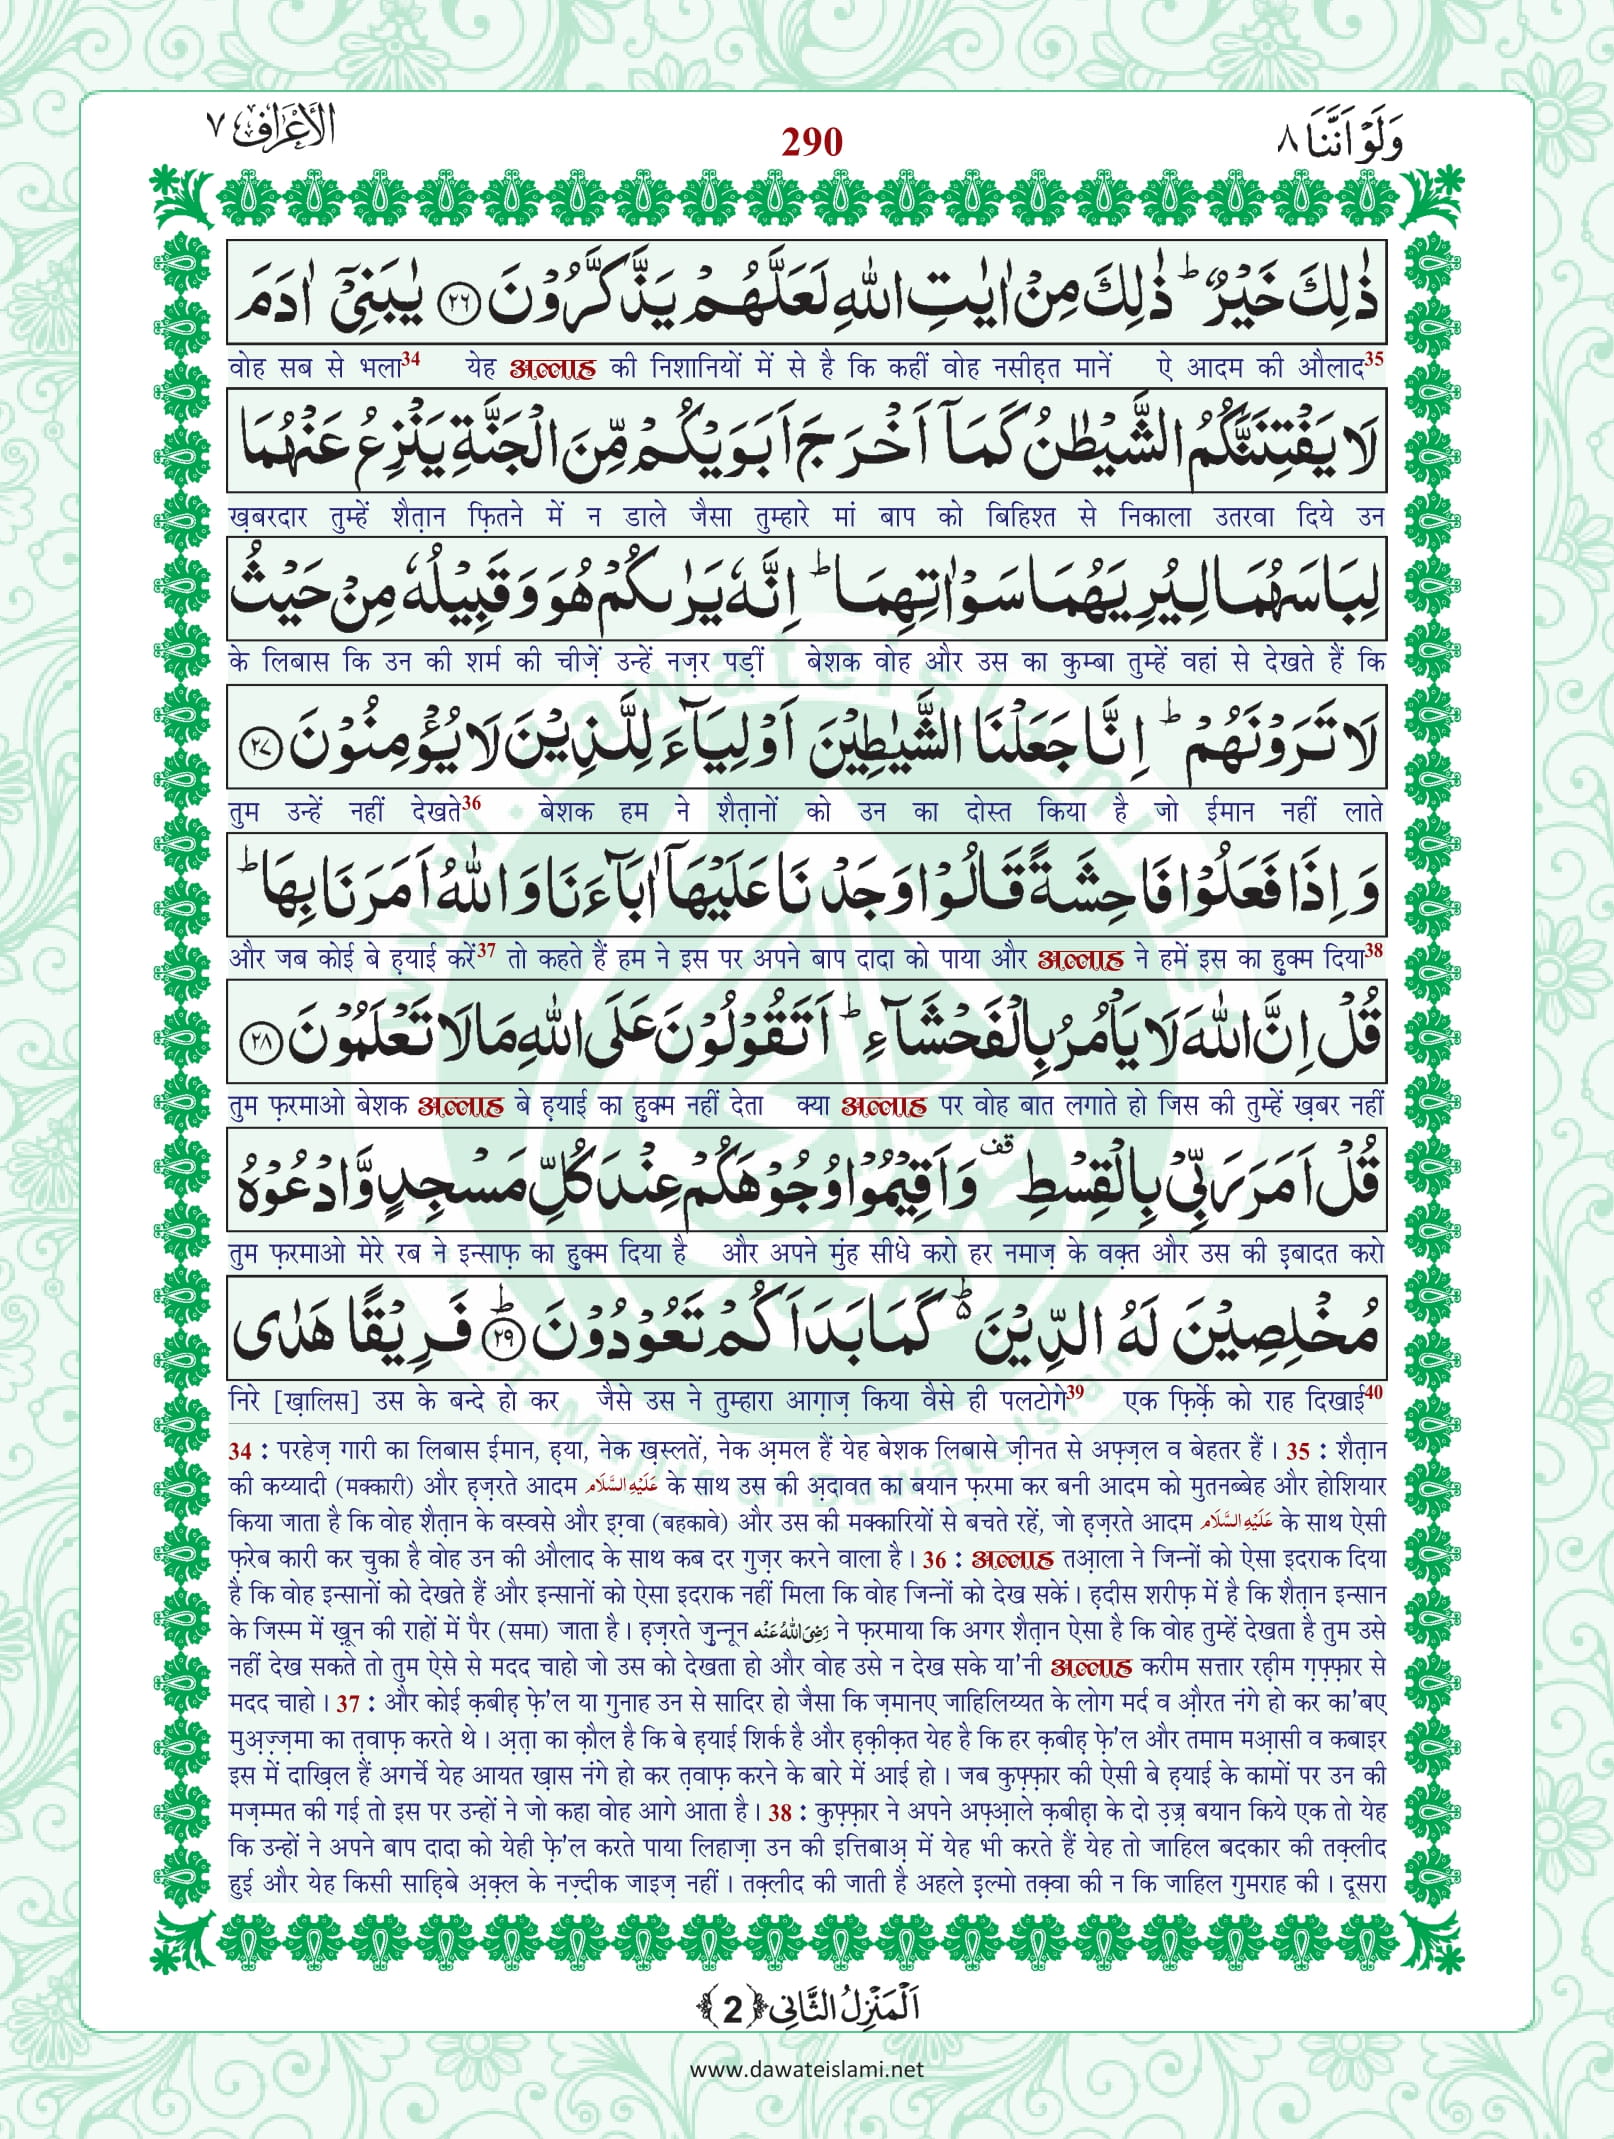 وَلَوْ اَنَّنَا ٨
290
الْاَعْرَاف ٧
ذٰلِكَ خَيْرٌ ؕ ذٰلِكَ مِنْ اٰيٰتِ اللّٰهِ لَعَلَّهُمْ يَذَّكَّرُوْنَ ﴿٢٦﴾ يٰبَنِىْۤ اٰدَمَ
वोह सब से भला34 येह अल्लाह की निशानियों में से है कि कहीं वोह नसीह़त मानें ऐ आदम की औलाद35
لَا يَفْتِنَنَّكُمُ الشَّيْطٰنُ كَمَاۤ اَخْرَجَ اَبَوَيْكُمْ مِّنَ الْجَنَّةِ يَنْزِعُ عَنْهُمَا
ख़बरदार तुम्हें शैत़ान फ़ितने में न डाले जैसा तुम्हारे मां बाप को बिहिश्त से निकाला उतरवा दिये उन
لِبَاسَهُمَا لِيُرِيَهُمَا سَوْاٰتِهِمَا ؕ اِنَّهٗ يَرٰىكُمْ هُوَ وَ قَبِيْلُهٗ مِنْ حَيْثُ
के लिबास कि उन की शर्म की चीज़ें उन्हें नज़र पड़ीं बेशक वोह और उस का कुम्बा तुम्हें वहां से देखते हैं कि
لَا تَرَوْنَهُمْ ؕ اِنَّا جَعَلْنَا الشَّيٰطِيْنَ اَوْلِيَآءَ لِلَّذِيْنَ لَا يُؤْمِنُوْنَ ﴿٢٧﴾
तुम उन्हें नहीं देखते36 बेशक हम ने शैत़ानों को उन का दोस्त किया है जो ईमान नहीं लाते
وَ اِذَا فَعَلُوْا فَاحِشَةً قَالُوْا وَجَدْنَا عَلَيْهَاۤ اٰبَآءَنَا وَ اللّٰهُ اَمَرَنَا بِهَا ؕ
और जब कोई बे ह़याई करें37 तो कहते हैं हम ने इस पर अपने बाप दादा को पाया और अल्लाह ने हमें इस का ह़ुक्म दिया38
قُلْ اِنَّ اللّٰهَ لَا يَاْمُرُ بِالْفَحْشَآءِ ؕ اَتَقُوْلُوْنَ عَلَى اللّٰهِ مَا لَا تَعْلَمُوْنَ ﴿٢٨﴾
तुम फ़रमाओ बेशक अल्लाह बे ह़याई का ह़ुक्म नहीं देता क्या अल्लाह पर वोह बात लगाते हो जिस की तुम्हें ख़बर नहीं
قُلْ اَمَرَ رَبِّىْ بِالْقِسْطِ ۟ وَ اَقِيْمُوْا وُجُوْهَكُمْ عِنْدَ كُلِّ مَسْجِدٍ وَّ ادْعُوْهُ
तुम फ़रमाओ मेरे रब ने इन्साफ़ का ह़ुक्म दिया है और अपने मुंह सीधे करो हर नमाज़ के वक़्त और उस की इबादत करो
مُخْلِصِيْنَ لَهُ الدِّيْنَ ؕ۬ كَمَا بَدَاَكُمْ تَعُوْدُوْنَ ﴿ؕ٢٩﴾ فَرِيْقًا هَدٰى
निरे [ख़ालिस] उस के बन्दे हो कर जैसे उस ने तुम्हारा आग़ाज़ किया वैसे ही पलटोगे39 एक फ़िर्क़े को राह दिखाई40
34 : परहेज़ गारी का लिबास ईमान, ह़या, नेक ख़स्लतें, नेक अ़मल हैं येह बेशक लिबासे ज़ीनत से अफ़्ज़ल व बेहतर हैं। 35 : शैत़ान
की कय्यादी (मक्कारी) और ह़ज़रते आदम عَلَيْهِ السَّلَام के साथ उस की अ़दावत का बयान फ़रमा कर बनी आदम को मुतनब्बेह और होशियार
किया जाता है कि वोह शैत़ान के वस्वसे और इग़्वा (बहकावे) और उस की मक्कारियों से बचते रहें, जो ह़ज़रते आदम عَلَيْهِ السَّلَام के साथ ऐसी
फ़रेब कारी कर चुका है वोह उन की औलाद के साथ कब दर गुज़र करने वाला है। 36 : अल्लाह तआ़ला ने जिन्नों को ऐसा इदराक दिया
है कि वोह इन्सानों को देखते हैं और इन्सानों को ऐसा इदराक नहीं मिला कि वोह जिन्नों को देख सकें। ह़दीस शरीफ़ में है कि शैत़ान इन्सान
के जिस्म में ख़ून की राहों में पैर (समा) जाता है। ह़ज़रते ज़ुन्नून رَضِىَ اللّٰهُ عَنْه ने फ़रमाया कि अगर शैत़ान ऐसा है कि वोह तुम्हें देखता है तुम उसे
नहीं देख सकते तो तुम ऐसे से मदद चाहो जो उस को देखता हो और वोह उसे न देख सके या'नी अल्लाह करीम सत्तार रह़ीम ग़फ़्फ़ार से
मदद चाहो। 37 : और कोई क़बीह़ फ़े'ल या गुनाह उन से सादिर हो जैसा कि ज़मानए जाहिलिय्यत के लोग मर्द व औ़रत नंगे हो कर का'बए
मुअ़ज़्ज़मा का त़वाफ़ करते थे। अ़त़ा का क़ौल है कि बे ह़याई शिर्क है और ह़क़ीक़त येह है कि हर क़बीह़ फ़े'ल और तमाम मआ़सी व कबाइर
इस में दाख़िल हैं अगर्चे येह आयत ख़ास नंगे हो कर त़वाफ़ करने के बारे में आई हो। जब कुफ़्फ़ार की ऐसी बे ह़याई के कामों पर उन की
मज़म्मत की गई तो इस पर उन्हों ने जो कहा वोह आगे आता है। 38 : कुफ़्फ़ार ने अपने अफ़्आ़ले क़बीह़ा के दो उ़ज़्र बयान किये एक तो येह
कि उन्हों ने अपने बाप दादा को येही फ़े'ल करते पाया लिहाज़ा उन की इत्तिबाअ़ में येह भी करते हैं येह तो जाहिल बदकार की तक़्लीद
हुई और येह किसी साह़िबे अ़क़्ल के नज़्दीक जाइज़ नहीं। तक़्लीद की जाती है अहले इल्मो तक़्वा की न कि जाहिल गुमराह की। दूसरा
اَلْمَنْزِلُ الثَّانِى ﴿2﴾
www.dawateislami.net